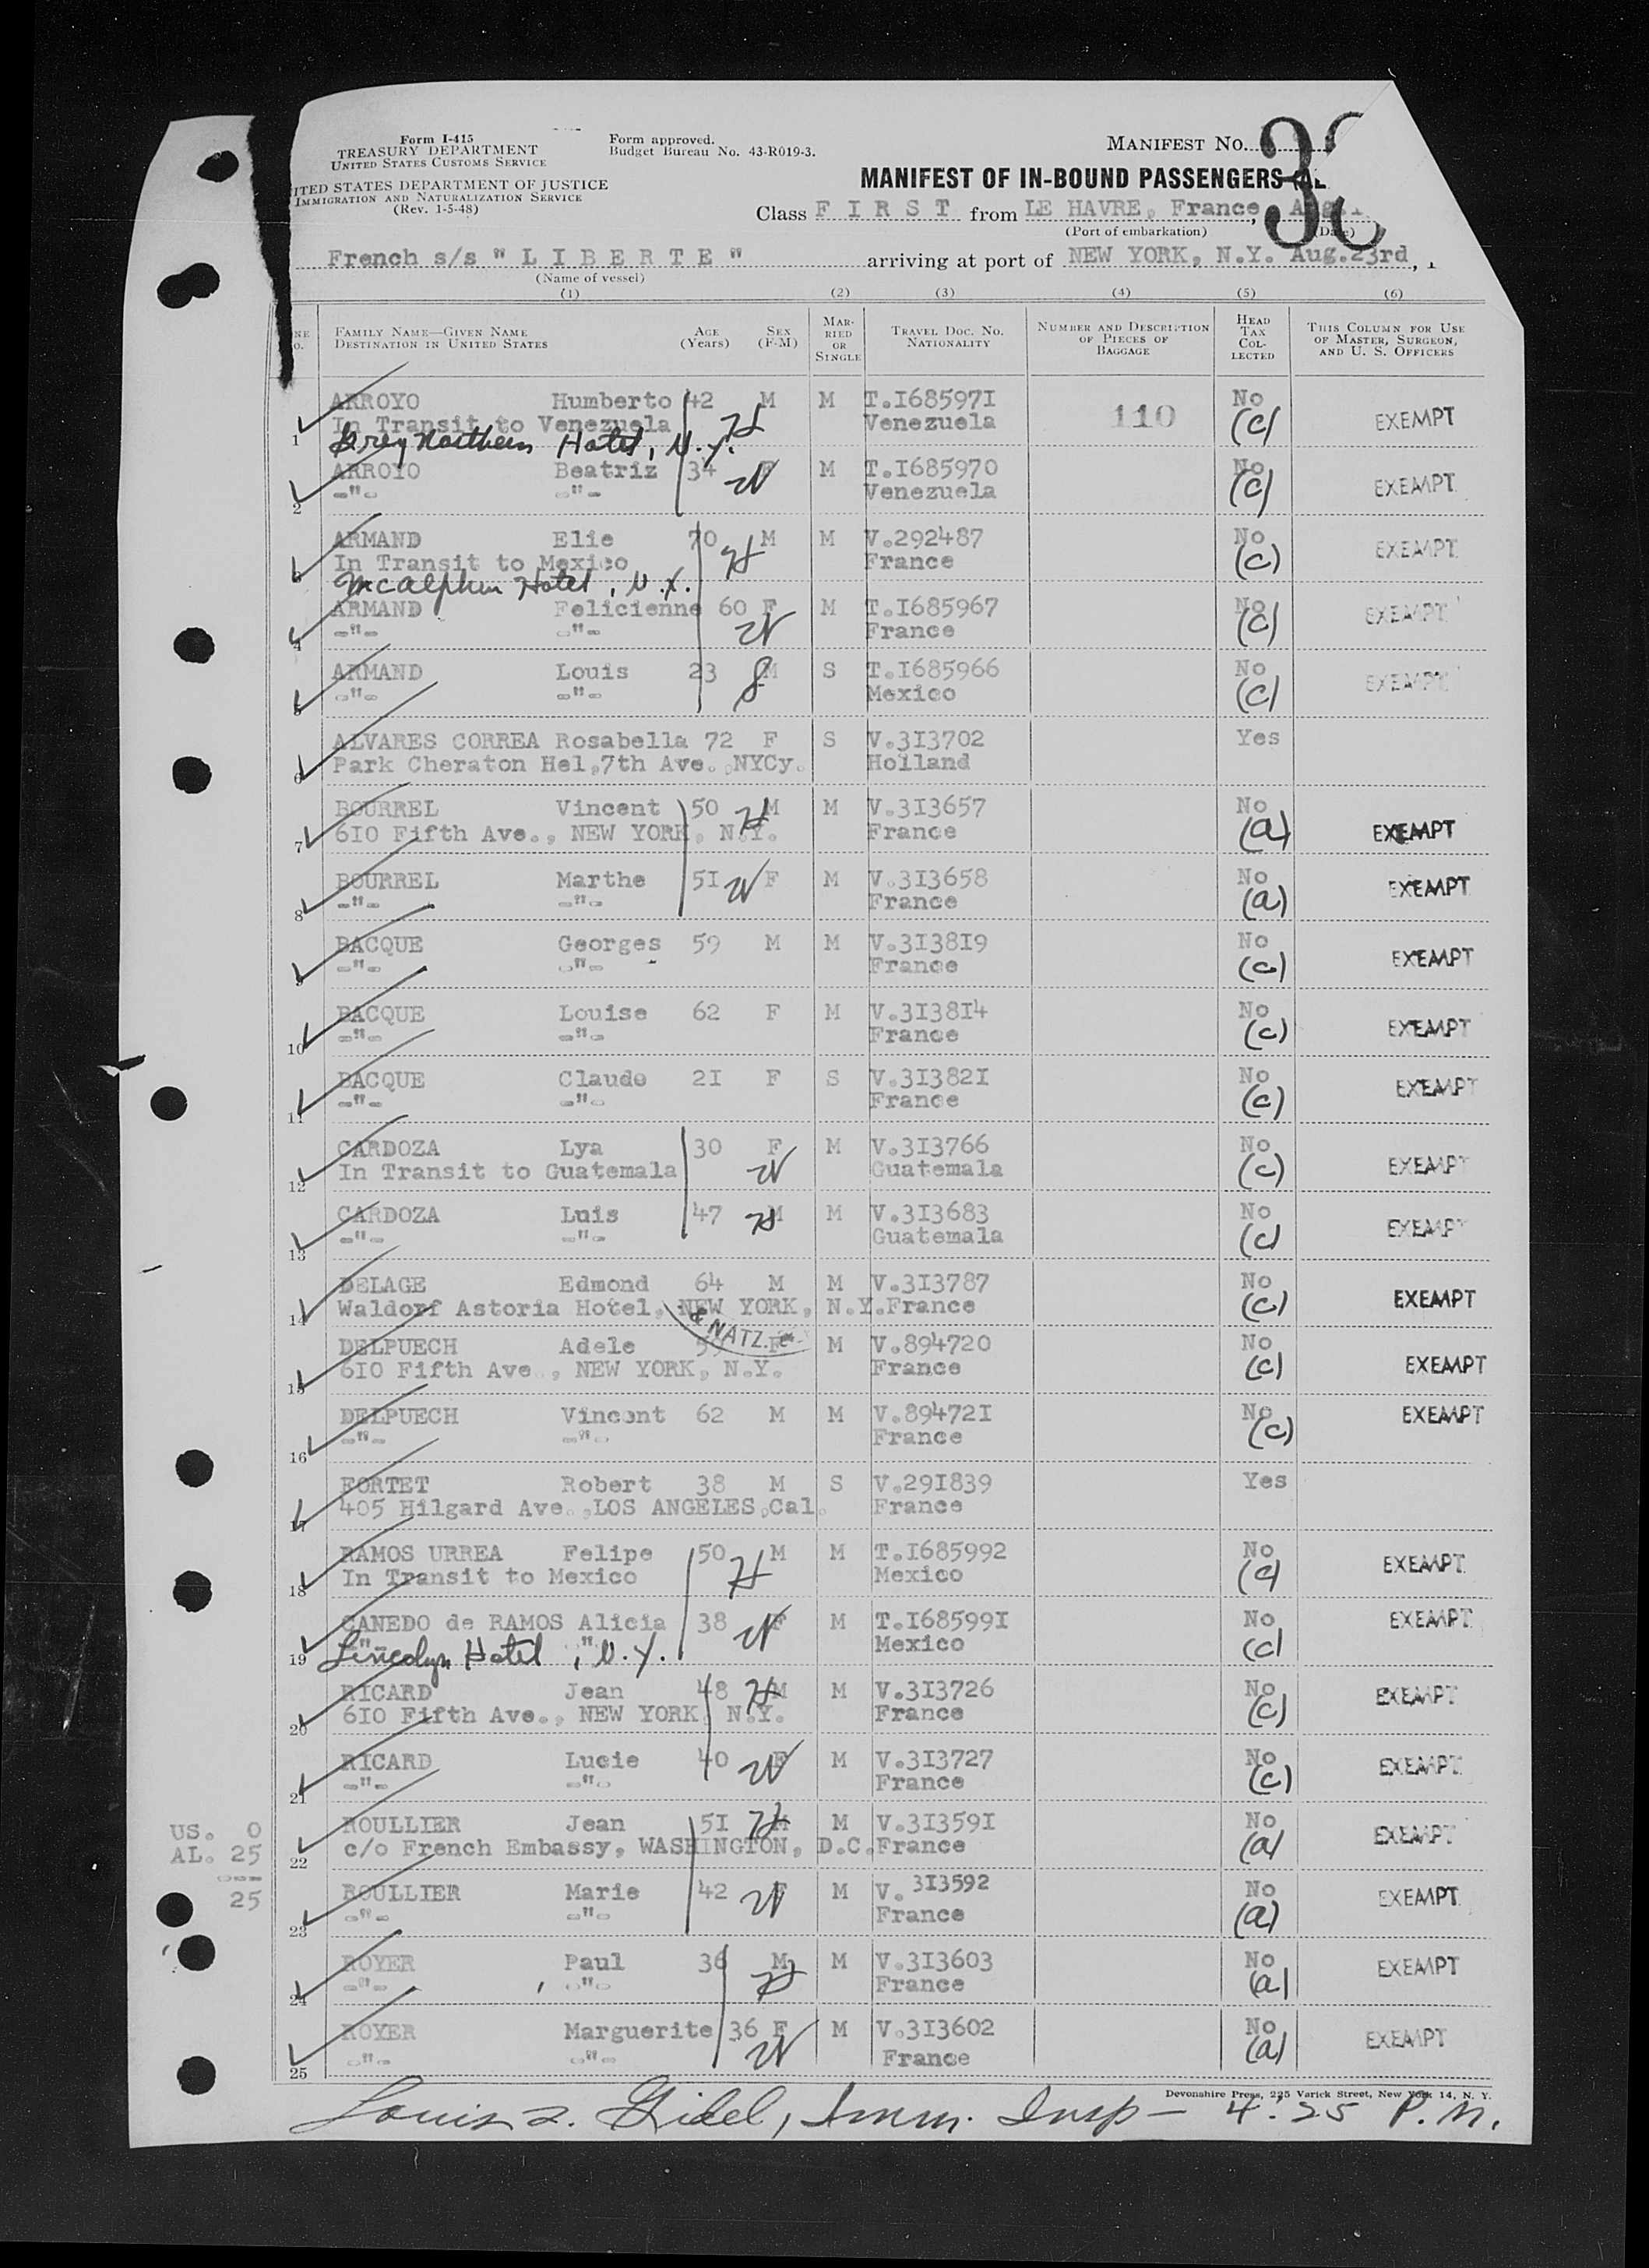 Form I-415
TREASURY DEPARTMENT
UNITED STATES CUSTOMS SERVICE
ITED STATES DEPARTMENT OF JUSTICE
IMMIGRATION AND NATURALIZATION SERVICE
(Rev. 1-5-48)
Form approved.
Budget Bureau No. 43-R019-3.
MANIFEST NO.
MANIFEST OF IN-BOUND PASSENGERS
Class F I R S T from LE HAVRE, France,
(Port of embarkation) (Date)
French s/s " L I B E R T E " arriving at port of NEW YORK, N.Y. Aug.23rd,
(Name of vessel)
(1) (2) (3) (4) (5) (6)
FAMILY NAME—GIVEN NAME DESTINATION IN UNITED STATES AGE (Years) SEX (F-M) MARRIED OR SINGLE TRAVEL DOC. NO. NATIONALITY NUMBER AND DESCRIPTION OF PIECES OF BAGGAGE HEAD TAX COLLECTED THIS COLUMN FOR USE OF MASTER, SURGEON, AND U. S. OFFICERS
ARROYO Humberto 42 M M T.I68597I No
1 In Transit to Venezuela H Venezuela 110 (c) EXEMPT
Grey Northern Hotel, N.Y.
ARROYO Beatriz 34 F M T.I685970 No
2 -"- -"- W Venezuela (c) EXEMPT
ARMAND Elie 70 M M V.292487 No
3 In Transit to Mexico H France (c) EXEMPT
McAlphin Hotel, N.Y.
ARMAND Felicienne 60 F M T.I685967 No
4 -"- -"- W France (c) EXEMPT
ARMAND Louis 23 M S T.I685966 No
5 -"- -"- Mexico (c) EXEMPT
ALVARES CORREA Rosabella 72 F S V.3I3702 Yes
6 Park Cheraton Hel,7th Ave.,NYCy. Holland
BOURREL Vincent 50 M M V.3I3657 No
7 6I0 Fifth Ave., NEW YORK, N.Y. H France (a) EXEMPT
BOURREL Marthe 5I F M V.3I3658 No
8 -"- -"- W France (a) EXEMPT
BACQUE Georges 59 M M V.3I38I9 No
9 -"- -"- France (c) EXEMPT
BACQUE Louise 62 F M V.3I38I4 No
10 -"- -"- France (c) EXEMPT
BACQUE Claude 2I F S V.3I382I No
11 -"- -"- France (c) EXEMPT
CARDOZA Lya 30 F M V.3I3766 No
12 In Transit to Guatemala W Guatemala (c) EXEMPT
CARDOZA Luis 47 M M V.3I3683 No
13 -"- -"- H Guatemala (c) EXEMPT
DELAGE Edmond 64 M M V.3I3787 No
14 Waldorf Astoria Hotel, NEW YORK, N.Y. France (c) EXEMPT
& NATZ.
DELPUECH Adele F M V.894720 No
15 6I0 Fifth Ave., NEW YORK, N.Y. France (c) EXEMPT
DELPUECH Vincent 62 M M V.89472I No
16 -"- -"- France (c) EXEMPT
FORTET Robert 38 M S V.29I839 Yes
17 405 Hilgard Ave.,LOS ANGELES,Cal. France
RAMOS URREA Felipe 50 M M T.I685992 No
18 In Transit to Mexico H Mexico (c) EXEMPT
CANEDO de RAMOS Alicia 38 F M T.I68599I No
19 -"- -"- W Mexico (c) EXEMPT
Lincolyn Hotel, N.Y.
RICARD Jean 48 M M V.3I3726 No
20 6I0 Fifth Ave., NEW YORK N.Y. H France (c) EXEMPT
RICARD Lucie 40 F M V.3I3727 No
21 -"- -"- W France (c) EXEMPT
ROULLIER Jean 5I M M V.3I359I No
22 c/o French Embassy, WASHINGTON, D.C. H France (a) EXEMPT
US. 0
AL. 25
---
25
ROULLIER Marie 42 F M V. 3I3592 No
23 -"- -"- W France (a) EXEMPT
ROYER Paul 36 M M V.3I3603 No
24 -"- -"- H France (a) EXEMPT
ROYER Marguerite 36 F M V.3I3602 No
25 -"- -"- W France (a) EXEMPT
Devonshire Press, 225 Varick Street, New York 14, N. Y.
Louis Gidel, Imm. Insp — 4:25 P.M.